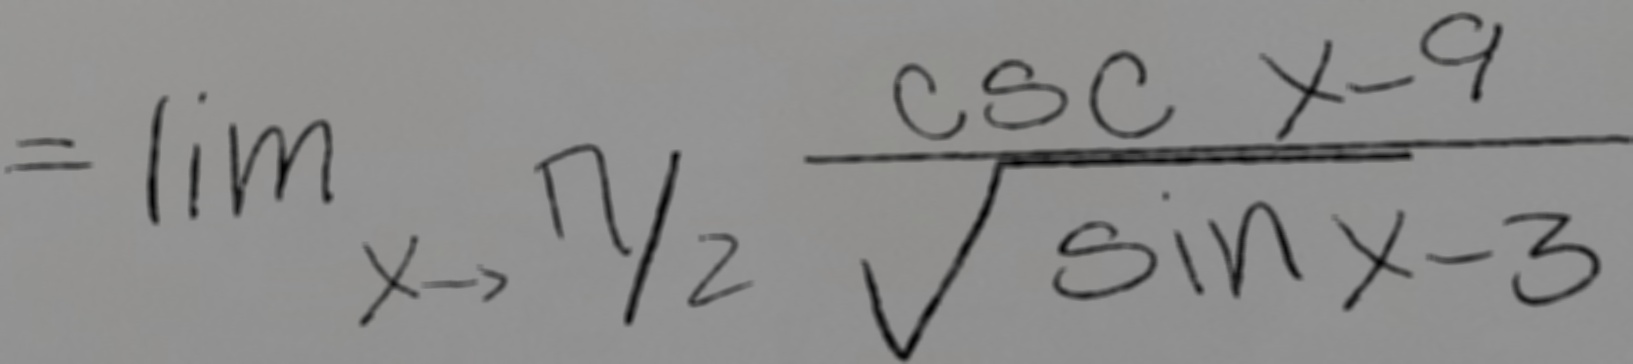 = lim x→ π/2 csc x-9 / √sin x-3